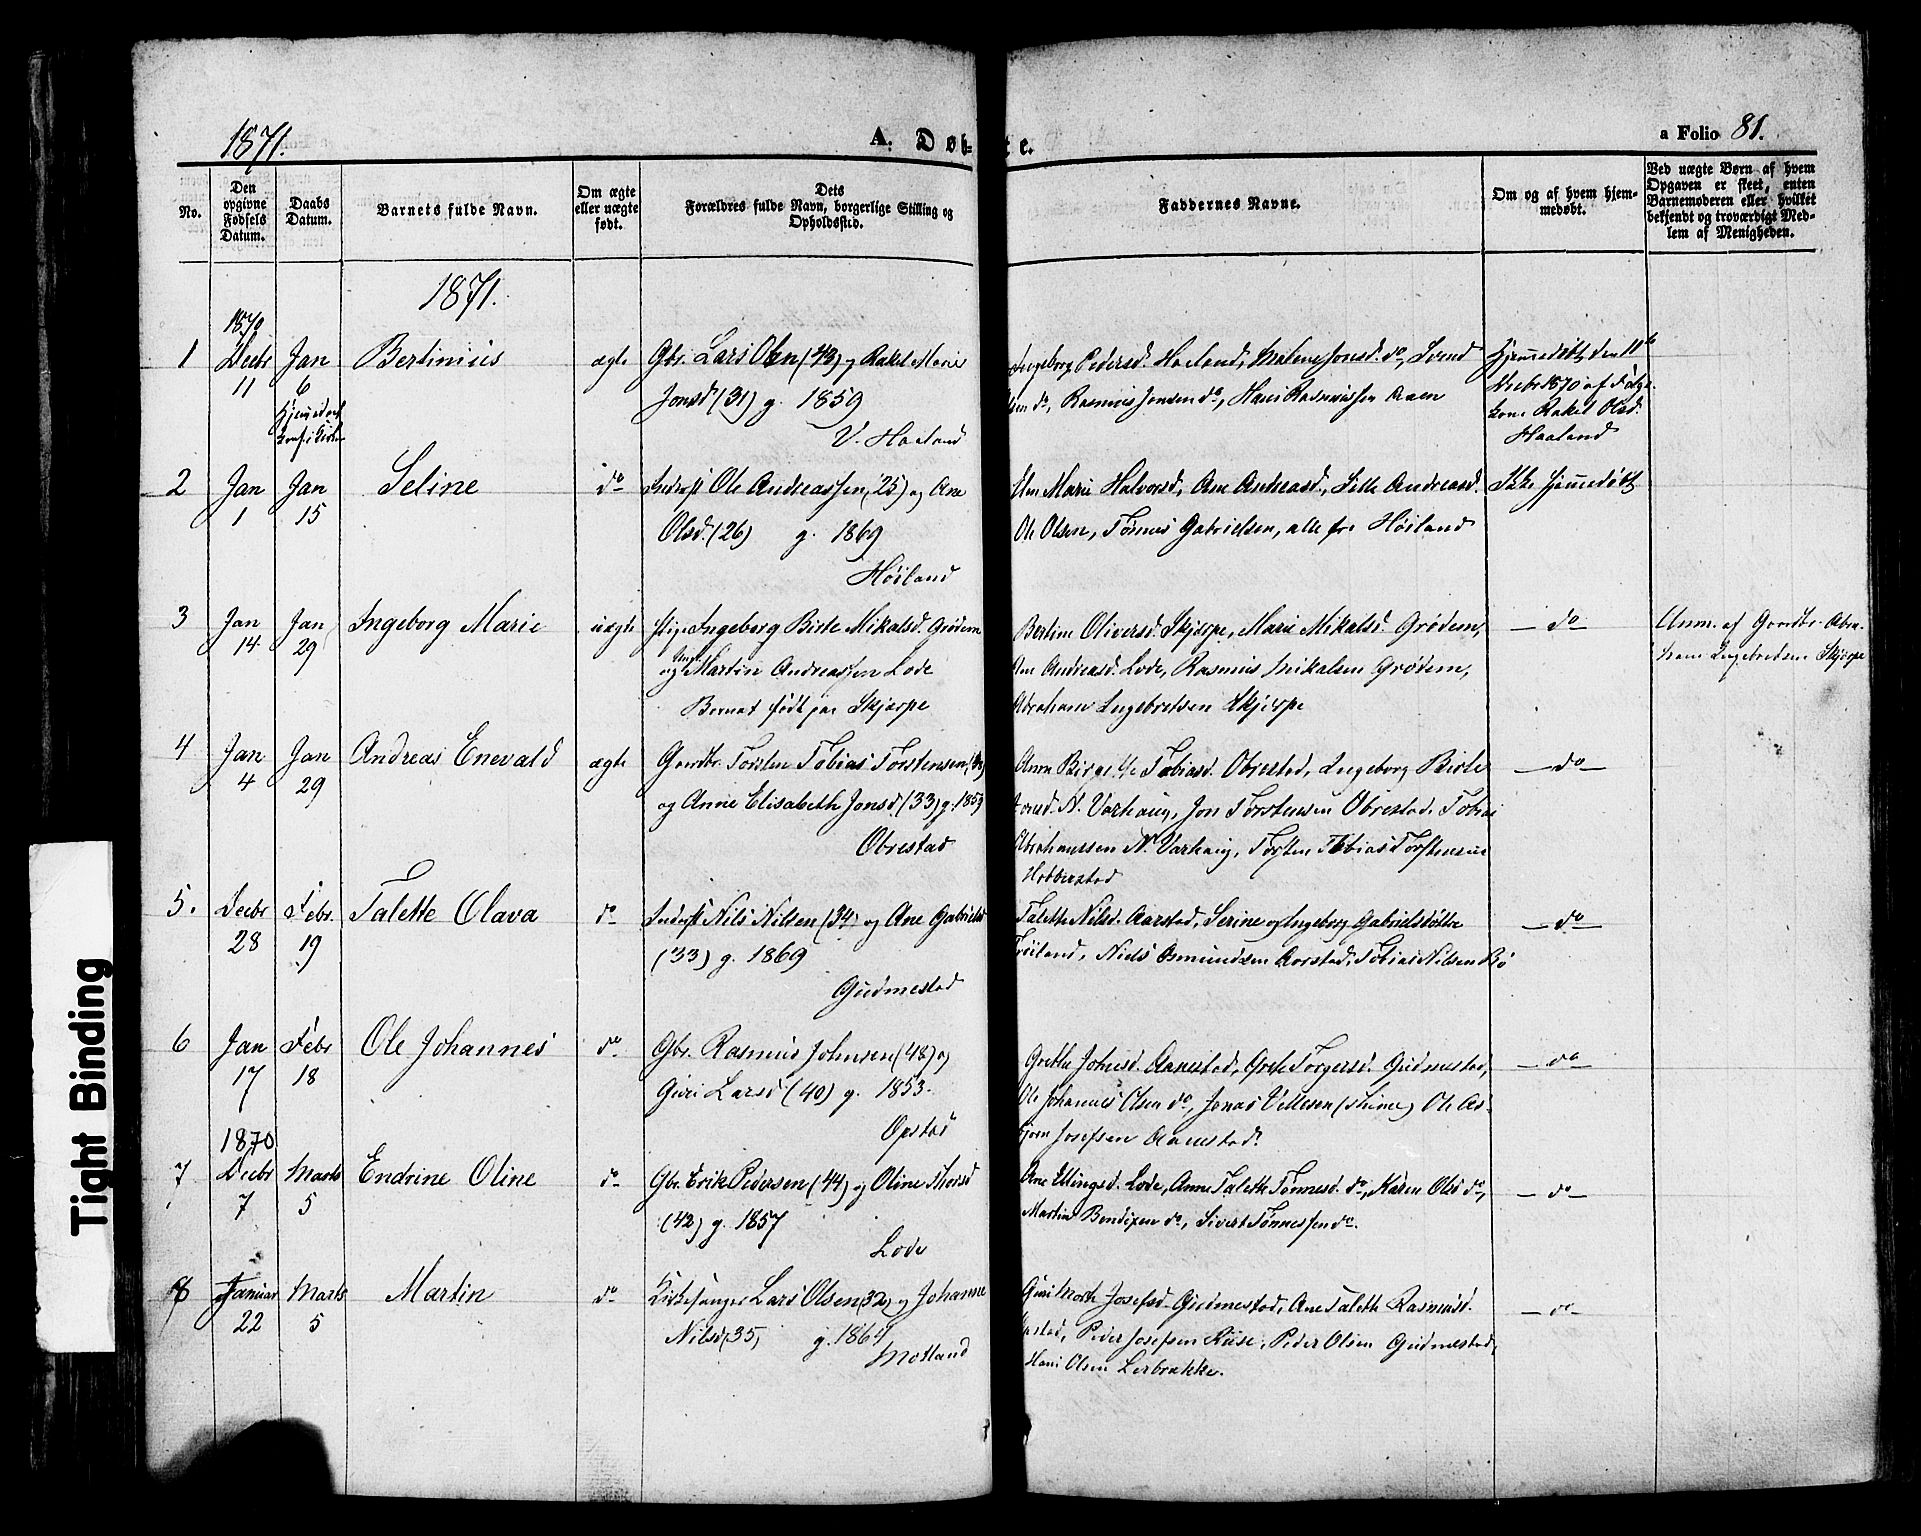 1871.
A. Døb-
te.
a Folio 81.
No.
Den opgivne Fødsels Datum.
Daabs Datum.
Barnets fulde Navn.
Om ægte eller uægte født.
Dets Forældres fulde Navn, borgerlige Stilling og Opholdssted.
Faddernes Navne.
Om og af hvem hjemmedøbt.
Ved uægte Børn af hvem Opgaven er skeet, enten Barnemoderen eller hvilket bekjendt og troværdigt Medlem af Menigheden.
1871.
1870
1 Decbr 11 Jan 6 Bertinius ægte
Gbr. Lars Olsen (43) og Rakel Marie
Jonsd (31) g. 1859
V. Haaland
Ingeborg Pedersd. Haaland, Malene Jonsd. do, Svend
do, Rasmus Jonsen do, Hans Rasmussen Aaen
Hjemmedøbt den 11te
Decbr 1870 af
kone Rakel Olsd.
Haaland
2 Jan 1 Jan 15 Seline do
Inderst Ole Andreassen (25) og Ane
Olsd. (26) g. 1869
Høiland
Marie Halvorsd, Ane Andreasd., Andreasd.
Ole Olsen, Tønnes Gabrielsen, alle fra Høiland
Ikke hjemmedøbt
3 Jan 14 Jan 29 Ingeborg Marie uægte
pige Ingeborg Birte Mikalsd. Grødem
og Martin Andreassen Lode
Barnet født paa Skjærpe
Bertine Oliversd. Skjærpe, Marie Mikalsd. Grødem,
Ane Andreasd. Lode, Rasmus Mikalsen Grødem,
Abraham Ingebretsen Skjærpe
— do —
Anm. af Gaardbr. Abra-
ham Ingebretsen Skjærpe
4 Jan 4 Jan 29 Andreas Enevald ægte
Gaardbr. Torsten Tobias Torstensen
og Anne Elisabeth Jonsd. (33) g. 1859
Obrestad
Anna Tobiasd. Obrestad, Ingeborg Birte
N. Varhaug, Jon Torstensen Obrestad, Tobias
Abrahamssen N. Varhaug, Torsten Tobias Torstensen
Hobberstad
— do —
5. Decbr 28 Febr. 19 Talette Olava do
Inderst Nils Nilsen (34) og Ane Gabrielsd
(33) g. 1869
Gudmestad
Talette Nilsd. Aarstad, Serine og Ingeborg Gabrielsdøttre
Niels Asmundsen Aarstad, Tobias Nilsen Bø
— do —
6 Jan 17 Febr 18 Ole Johannes do
Gbr. Rasmus Johnsen (48) og
Guri Larsd (40) g. 1853.
Opstad
Grethe Johnsd. Aanestad, Grethe Torgersd. Gudmestad,
Ole Johannes Olsen do, Jonas Villesen (Thime) Ole As-
bjørn Josefsen Aanestad.
— do —
1870
7 Decbr 7 Marts 5 Endrine Oline do
Gbr. Erik Pedersen (44) og Oline Thorsd
(42) g. 1857
Lode
Ane Ellingsd. Lode, Anne Talette Tønnesd. do, Karen Olsd do,
Martin Bendixen do, Sivert Tønnessen do.
— do —
8 Januar 22 Marts 5 Martin do
Kirkesanger Lars Olsen (32) og Johanne
Nilsd (35) g. 1864
Motland
Guri Marthe Josefsd. Gudmestad, Ane Talette Rasmusd.
Peder Josefsen Riise, Peder Olsen Gudmestad,
Hans Olsen Lerbrække.
— do —
Tight Binding